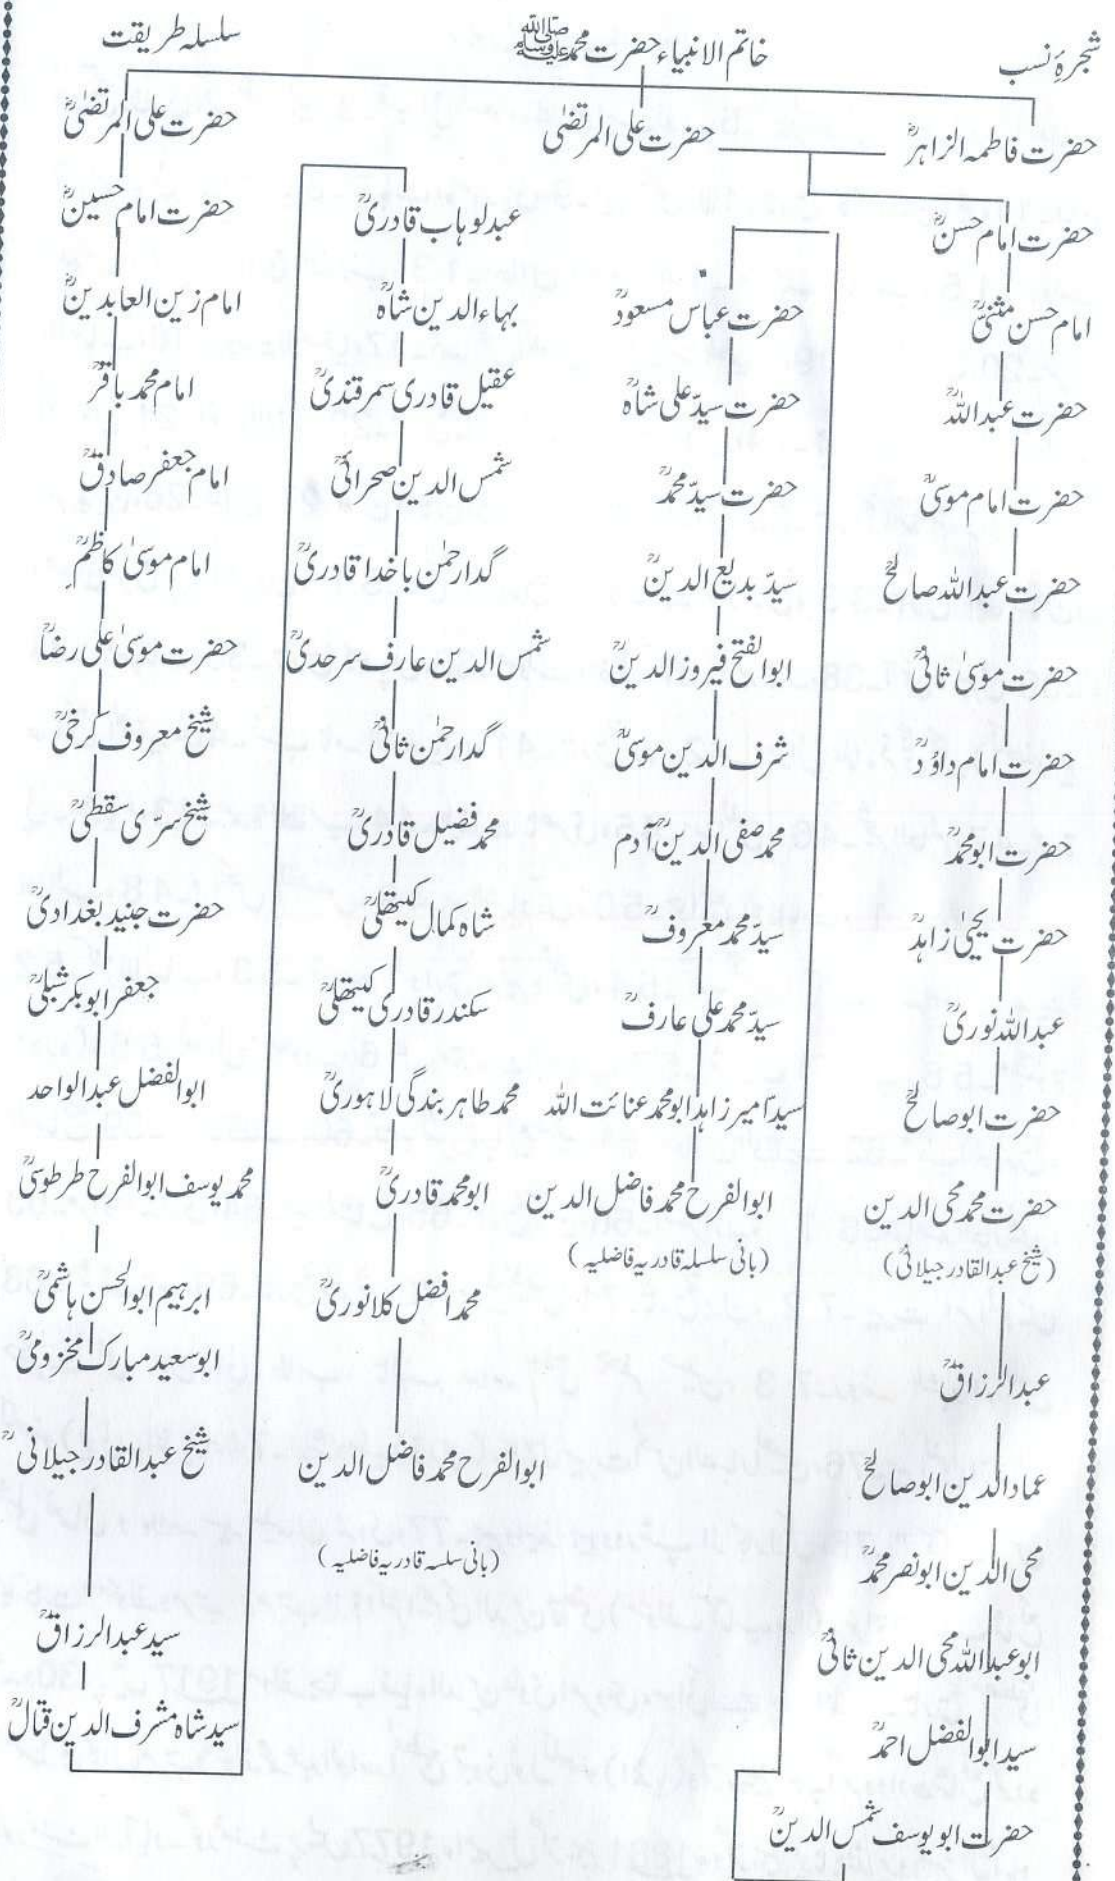 شجرۂ نسب
خاتم الانبیاء حضرت محمد ﷺ
سلسلہ طریقت
حضرت فاطمہ الزاہرؓ
حضرت علی المرتضٰی
حضرت امام حسنؓ
امام حسن مثنیٰؒ
حضرت عبداللہؒ
حضرت امام موسیٰؒ
حضرت عبداللہ صالحؒ
حضرت موسیٰ ثانیؒ
حضرت امام داؤدؒ
حضرت ابو محمدؒ
حضرت یحییٰ زاہدؒ
عبداللہ نوریؒ
حضرت ابو صالحؒ
حضرت محمد محی الدین
(شیخ عبدالقادر جیلانیؒ)
عبدالرزاقؒ
عماد الدین ابو صالحؒ
محی الدین ابو نصر محمدؒ
ابو عبداللہ محی الدین ثانیؒ
سید ابوالفضل احمدؒ
حضرت ابو یوسف شمس الدینؒ
حضرت عباس مسعودؒ
حضرت سیّد علی شاہؒ
حضرت سیّد محمدؒ
سیّد بدیع الدینؒ
ابوالفتح فیروز الدینؒ
شرف الدین موسیٰؒ
محمد صفی الدینؒ آدم
سیّد محمد معروفؒ
سیّد محمد علی عارفؒ
سید امیر زاہد ابو محمد عنائت اللہ
ابوالفرح محمد فاضل الدین
(بانی سلسلہ قادریہ فاضلیہ)
عبدلوہاب قادریؒ
بہاء الدین شاہؒ
عقیل قادری سمرقندیؒ
شمس الدین صحرائیؒ
گدا رحمٰن باخدا قادریؒ
شمس الدین عارف سرحدیؒ
گدا رحمٰن ثانیؒ
محمد فضیل قادریؒ
شاہ کمال کیتھلیؒ
سکندر قادری کیتھلیؒ
محمد طاہر بندگی لاہوریؒ
ابو محمد قادریؒ
محمد افضل کلانوریؒ
ابوالفرح محمد فاضل الدین
(بانی سلسہ قادریہ فاضلیہ)
حضرت علی المرتضٰیؓ
حضرت امام حسینؓ
امام زین العابدینؓ
امام محمد باقرؒ
امام جعفر صادقؒ
امام موسیٰ کاظمؒ
حضرت موسیٰ علی رضاؒ
شیخ معروف کرخیؒ
شیخ سرّی سقطیؒ
حضرت جنید بغدادیؒ
جعفر ابوبکر شبلیؒ
ابوالفضل عبدالواحد
محمد یوسف ابوالفرح طرطوسیؒ
ابرہیم ابوالحسن ہاشمیؒ
ابو سعید مبارک مخزومیؒ
شیخ عبدالقادر جیلانیؒ
سید عبدالرزاقؒ
سید شاہ مشرف الدین قتالؒ